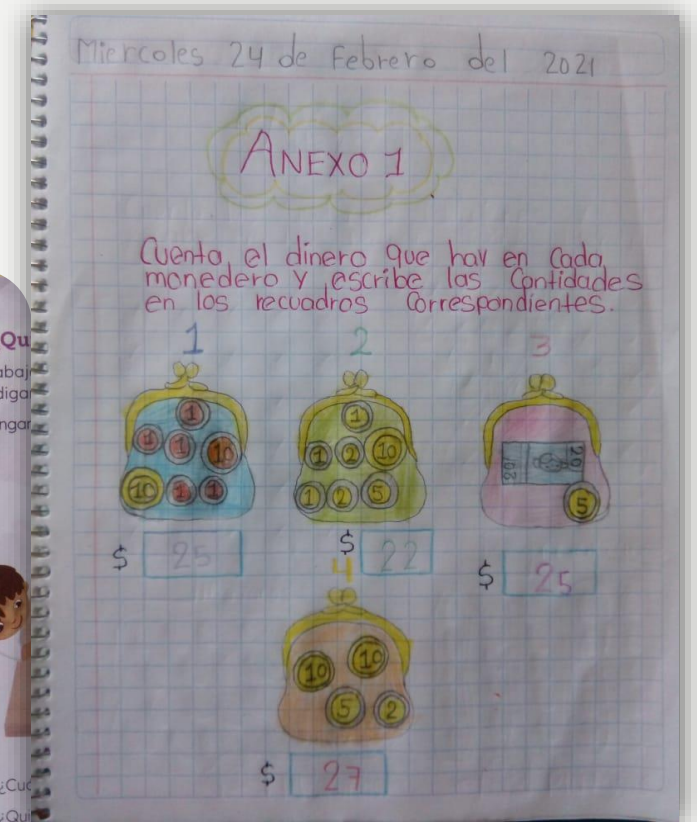 Miercoles 24 de Febrero del 2021
ANEXO 1
Cuenta el dinero que hay en Cada
monedero y escribe las Cantidades
en los recuadros Correspondientes.
1 2 3
1
1 1 10
10 1 1
1
1 2 10
1 2 5
20 20
5
$ 25
$ 22
$ 25
4
10 10
5 2
$ 27
Qu
abaj
diga
ngar
¿Cuá
¿Qui